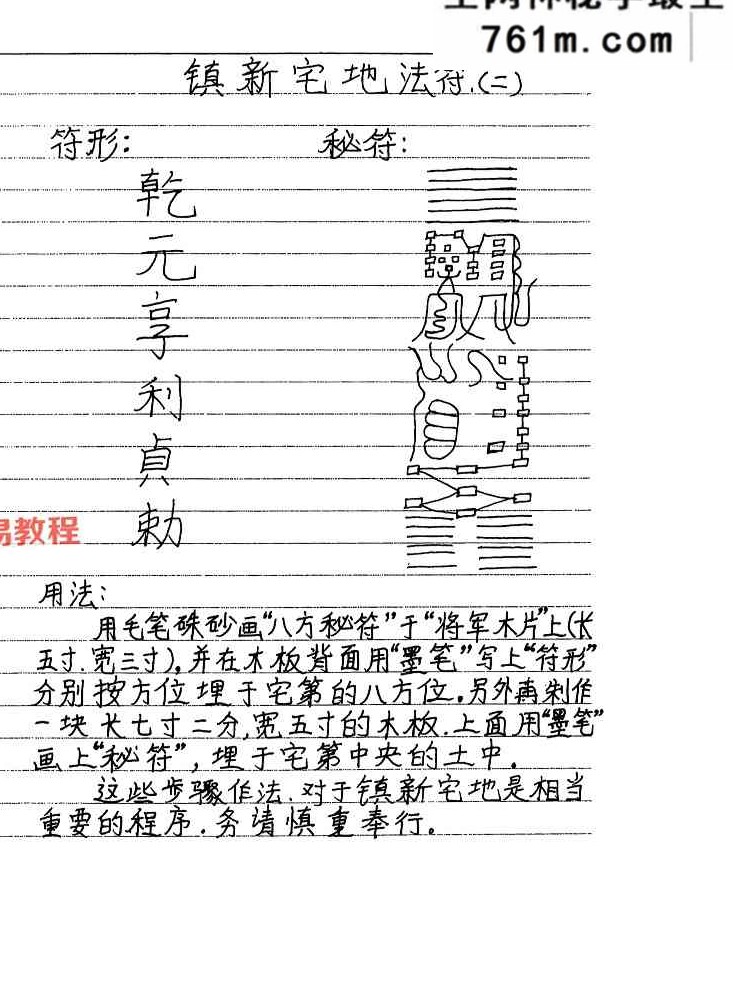 761m.com
镇新宅地法符.(二)
符形: 秘符:
乾
元
享
利
貞
勅
易教程
用法:
用毛笔硃砂画“八方秘符”于“将军木片”上(长
五寸.宽三寸),并在木板背面用“墨笔”写上“符形”
分别按方位埋于宅第的八方位.另外再制作
一块长七寸二分,宽五寸的木板.上面用“墨笔”
画上“秘符”,埋于宅第中央的土中.
这些步骤作法.对于镇新宅地是相当
重要的程序.务请慎重奉行。